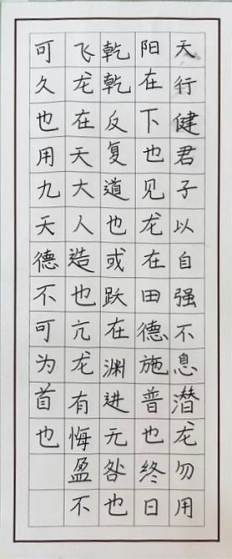 天行健君子以自强不息潜龙勿用
阳在下也见龙在田德施普也终日
乾乾反复道也或跃在渊进无咎也
飞龙在天大人造也亢龙有悔盈不
可久也用九天德不可为首也